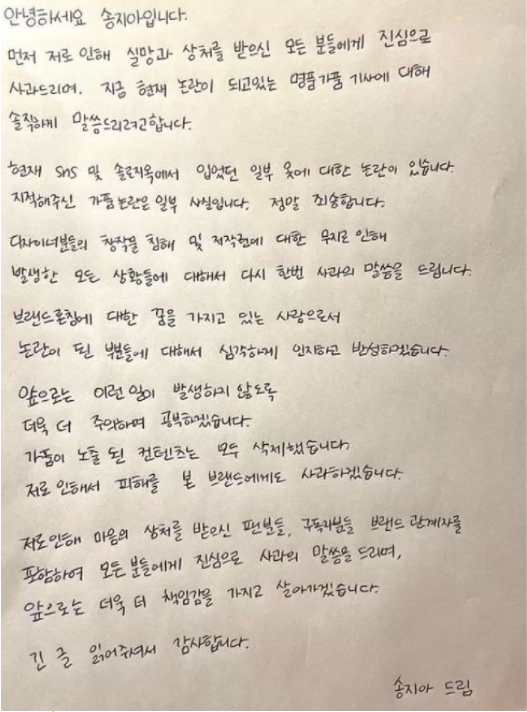 안녕하세요 송지아입니다.
먼저 저로 인해 실망과 상처를 받으신 모든 분들에게 진심으로
사과드리며, 지금 현재 논란이 되고있는 명품가품 기사에 대해
솔직하게 말씀드리려고합니다.
현재 SNS 및 솔로지옥에서 입었던 일부 옷에 대한 논란이 있습니다.
지적해주신 가품논란은 일부 사실입니다. 정말 죄송합니다.
디자이너분들의 창작을 침해 및 저작권에 대한 무지로 인해
발생한 모든 상황들에 대해서 다시 한번 사과의 말씀을 드립니다.
브랜드론칭에 대한 꿈을 가지고 있는 사람으로서
논란이 된 부분들에 대해서 심각하게 인지하고 반성하겠습니다.
앞으로는 이런 일이 발생하지 않도록
더욱 더 주의하며 공부하겠습니다.
가품이 노출 된 컨텐츠는 모두 삭제했습니다.
저로 인해서 피해를 본 브랜드에게도 사과하겠습니다.
저로인해 마음의 상처를 받으신 팬분들, 구독자분들 브랜드 관계자를
포함하여 모든 분들에게 진심으로 사과의 말씀을 드리며,
앞으로는 더욱 더 책임감을 가지고 살아가겠습니다.
긴 글 읽어주셔서 감사합니다.
송지아 드림